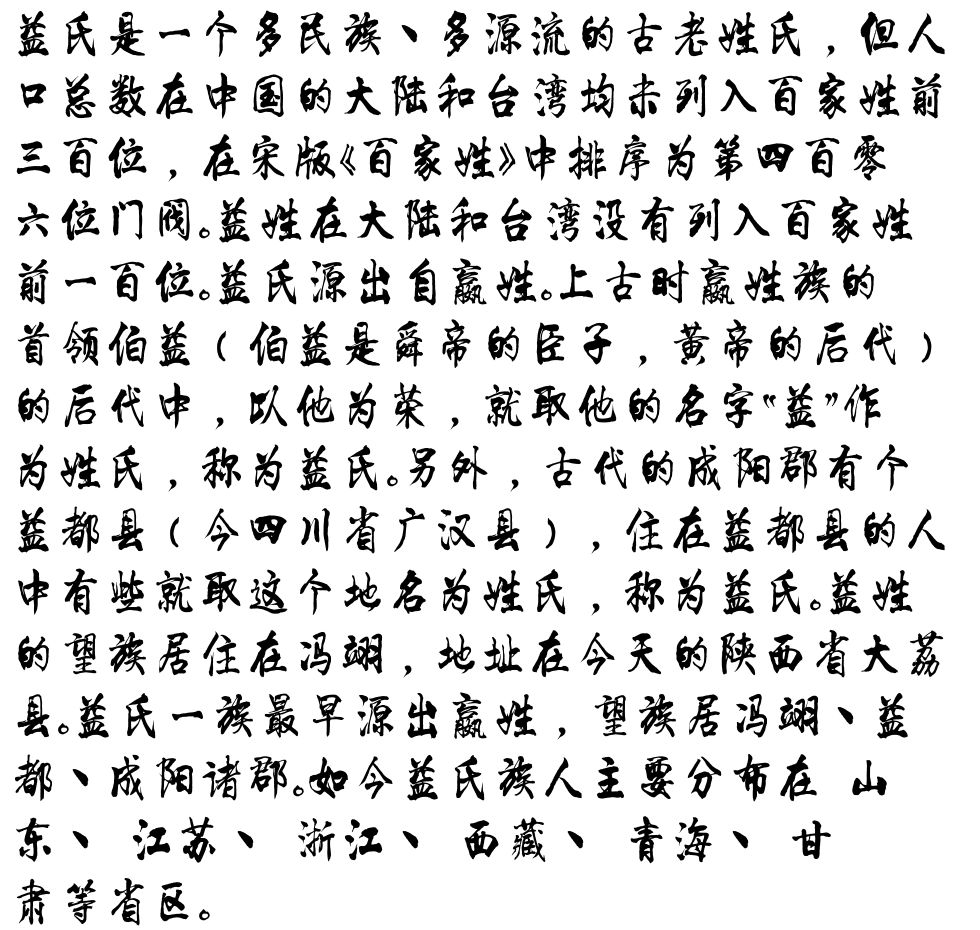 益氏是一个多民族、多源流的古老姓氏，但人
口总数在中国的大陆和台湾均未列入百家姓前
三百位，在宋版《百家姓》中排序为第四百零
六位门阀。益姓在大陆和台湾没有列入百家姓
前一百位。益氏源出自嬴姓。上古时嬴姓族的
首领伯益（伯益是舜帝的臣子，黄帝的后代）
的后代中，以他为荣，就取他的名字“益”作
为姓氏，称为益氏。另外，古代的成阳郡有个
益都县（今四川省广汉县），住在益都县的人
中有些就取这个地名为姓氏，称为益氏。益姓
的望族居住在冯翊，地址在今天的陕西省大荔
县。益氏一族最早源出嬴姓，望族居冯翊、益
都、成阳诸郡。如今益氏族人主要分布在 山
东、 江苏、 浙江、 西藏、 青海、 甘
肃等省区。